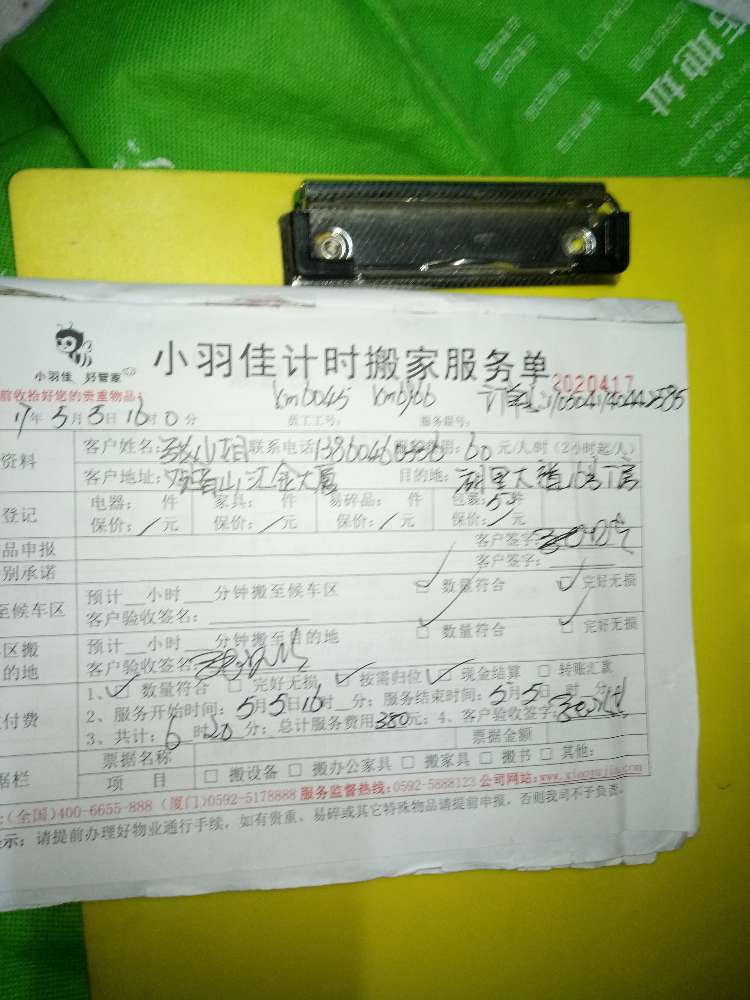 地址
小羽佳 好管家
小羽佳计时搬家服务单
2020417
前收拾好您的贵重物品!
km6045
员工工号: 服务跟号:
17年5月3日16时0分
资料
客户姓名: 联系电话: 60元/人/时(2小时起/人)
客户地址: 汇金大厦 目的地:
登记
电器: 件 家具: 件 易碎品: 件 包装: 5件
保价: / 元 保价: / 元 保价: / 元 保价: / 元
品申报
客户签字:
别承诺
客户签字:
至候车区
预计__小时__分钟搬至候车区 数量符合 完好无损
客户验收签名:
区搬
的地
预计__小时__分钟搬至目的地 数量符合 完好无损
客户验收签名:
付费
1、 数量符合 完好无损 按需归位 现金结算 转账汇款
2、服务开始时间: 5月5日16时__分; 服务结束时间: 5月5日 时 分
3、共计: 6时20分; 总计服务费用380元; 4、客户验收签字:
据栏
票据名称 票据金额
项 目 搬设备 搬办公家具 搬家具 搬书 其他:
:(全国)400-6655-888 (厦门)0592-5178888 服务监督热线:0592-5888123 公司网站:www.xiaoyujia.com
示: 请提前办理好物业通行手续, 如有贵重、易碎或其它特殊物品请提前申报, 否则我司不予负责。